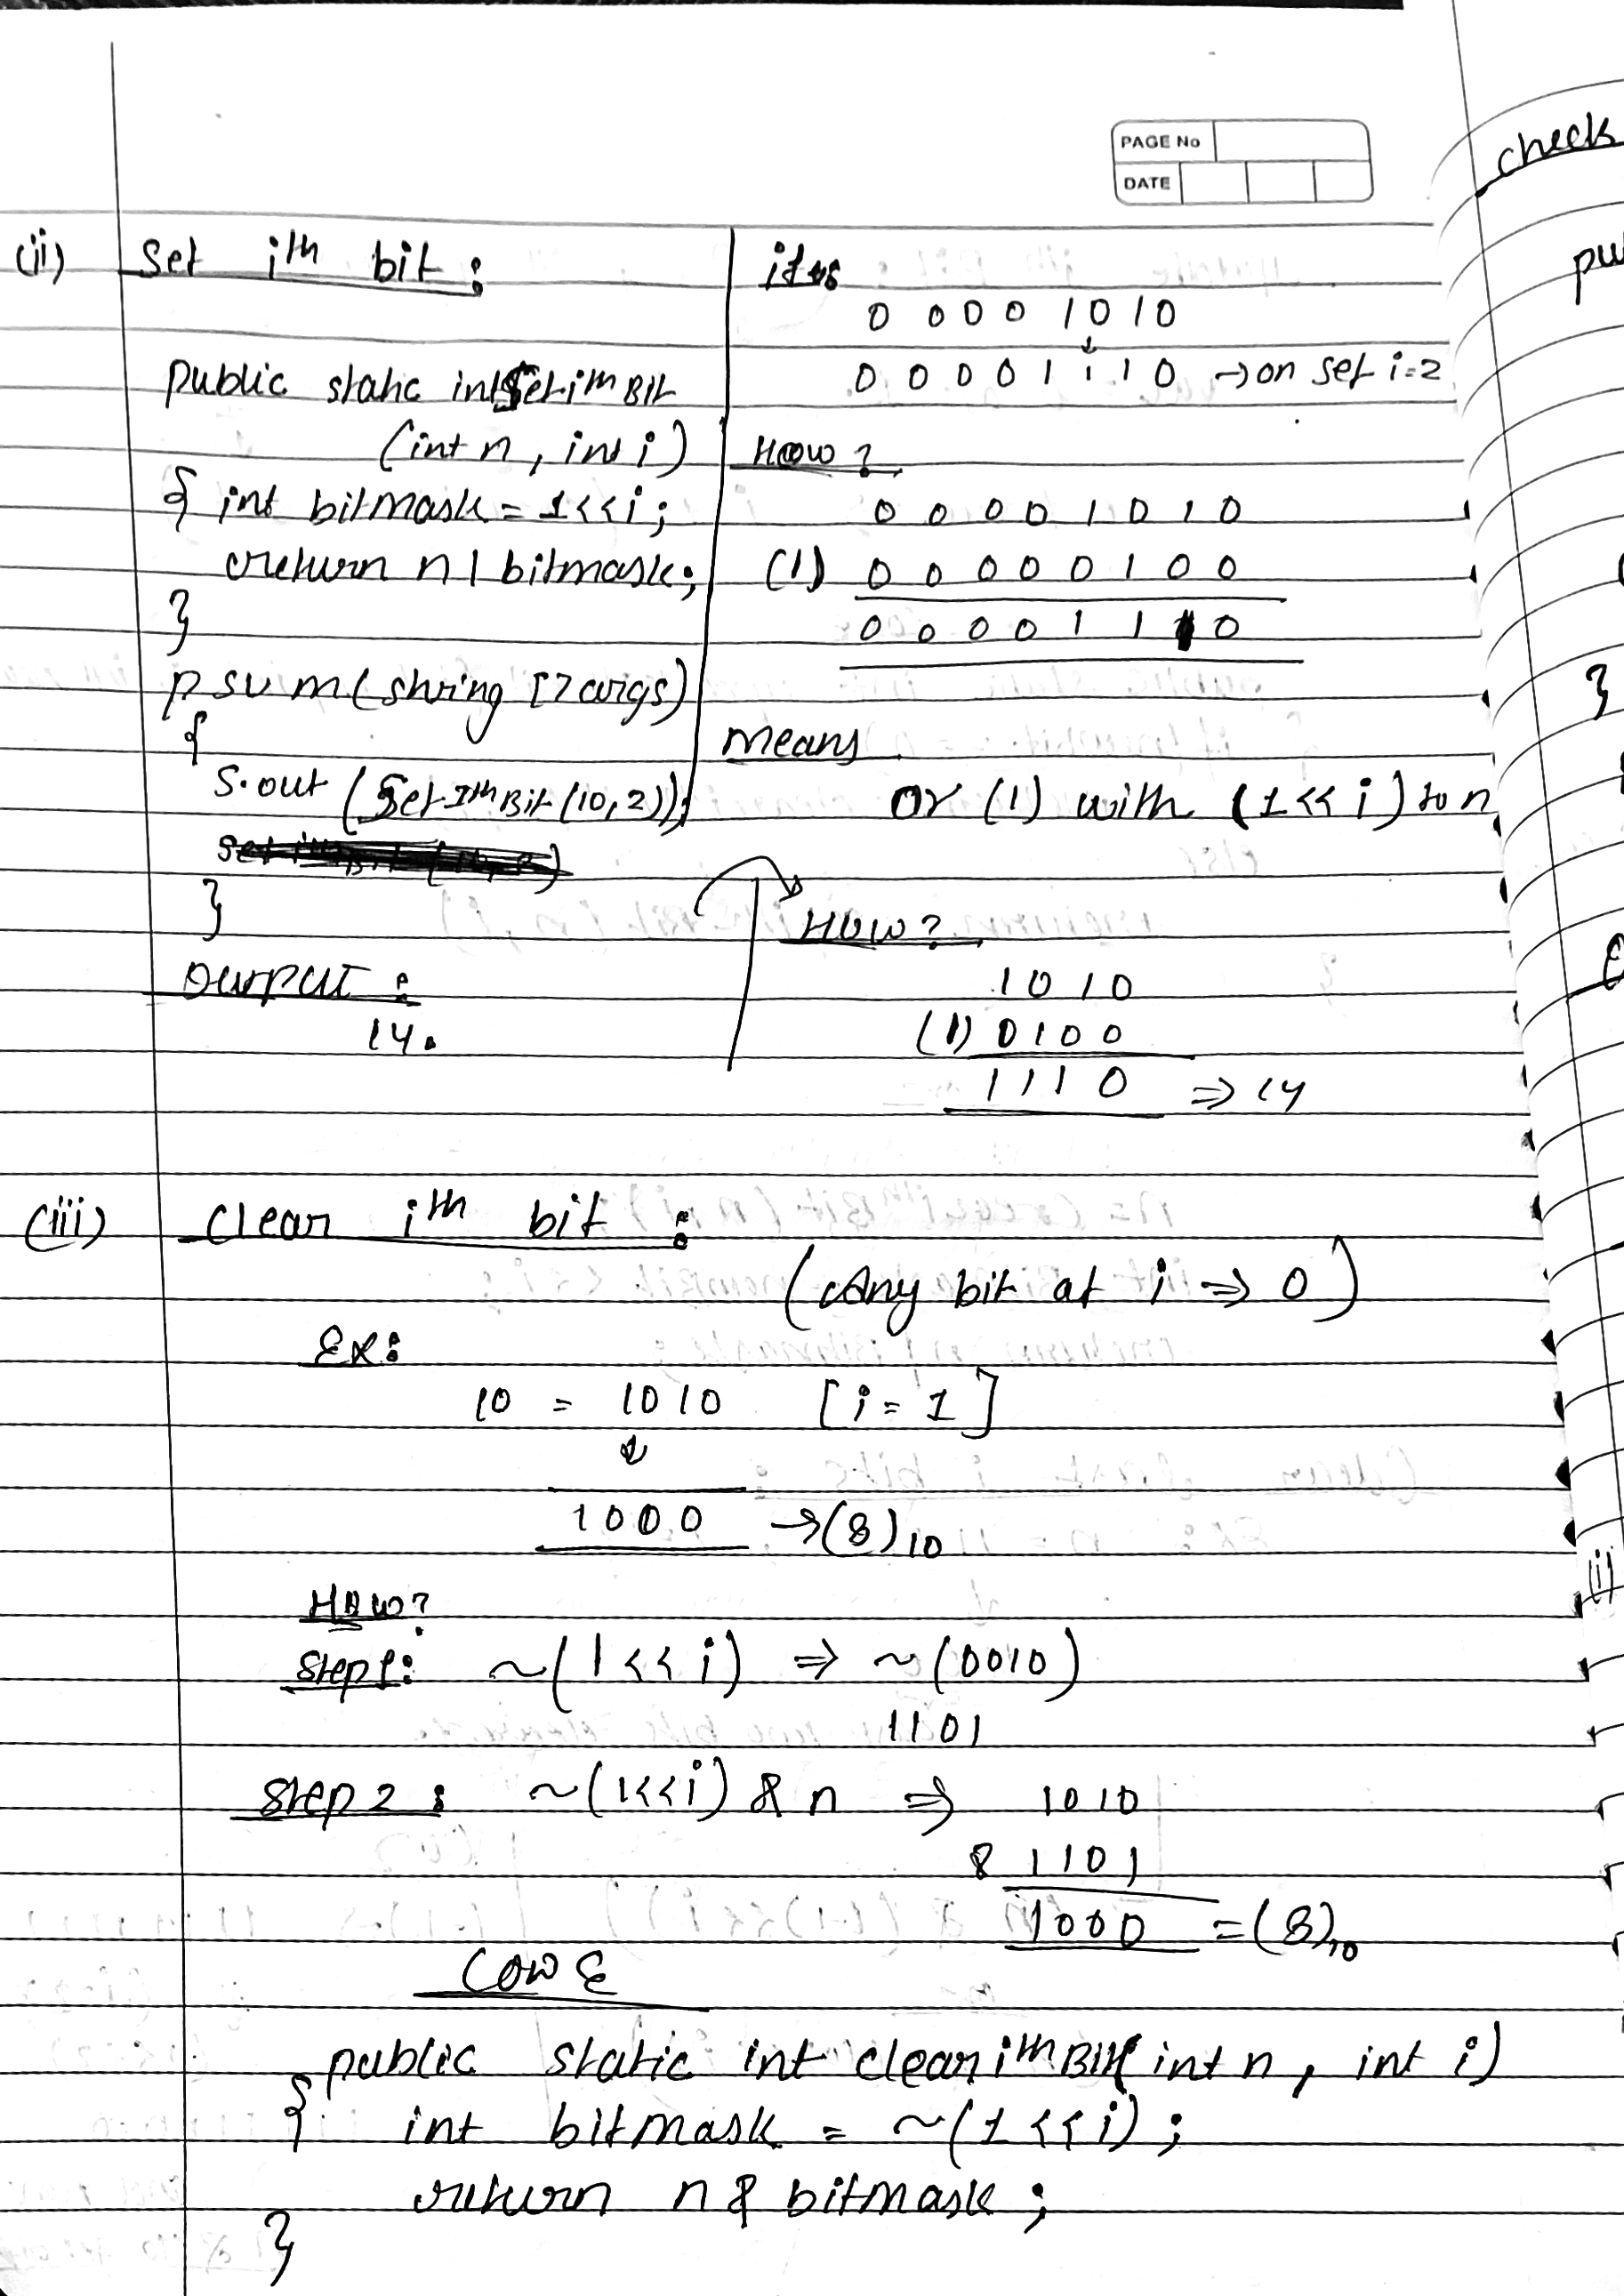 PAGE No
DATE
check
pu
(ii) Set ith bit :
public static int SetithBit
(int n, int i)
{ int bitmask = 1<<i;
return n | bitmask;
}
psvm(string [] args)
{
S.out (SetIthBit (10,2));
}
OUTPUT :
14.
0 0 0 0 1 0 1 0
0 0 0 0 1 1 1 0 → on set i=2
How ?
0 0 0 0 1 0 1 0
(|) 0 0 0 0 0 1 0 0
0 0 0 0 1 1 1 0
means
or (|) with (1<<i) to n
How ?
1 0 1 0
(|) 0 1 0 0
1 1 1 0 ⇒ 14
}
(iii) Clear ith bit :
(Any bit at i ⇒ 0)
Ex:
10 = 1010 [i = 1]
↓
1000 → (8)10
How?
Step1: ~(1<<i) ⇒ ~(0010)
1101
Step 2 : ~(1<<i) & n ⇒ 1010
& 1101
1000 = (8)10
(i)
public static int clearithBit(int n, int i)
{ int bitmask = ~(1<<i);
return n & bitmask ;
}